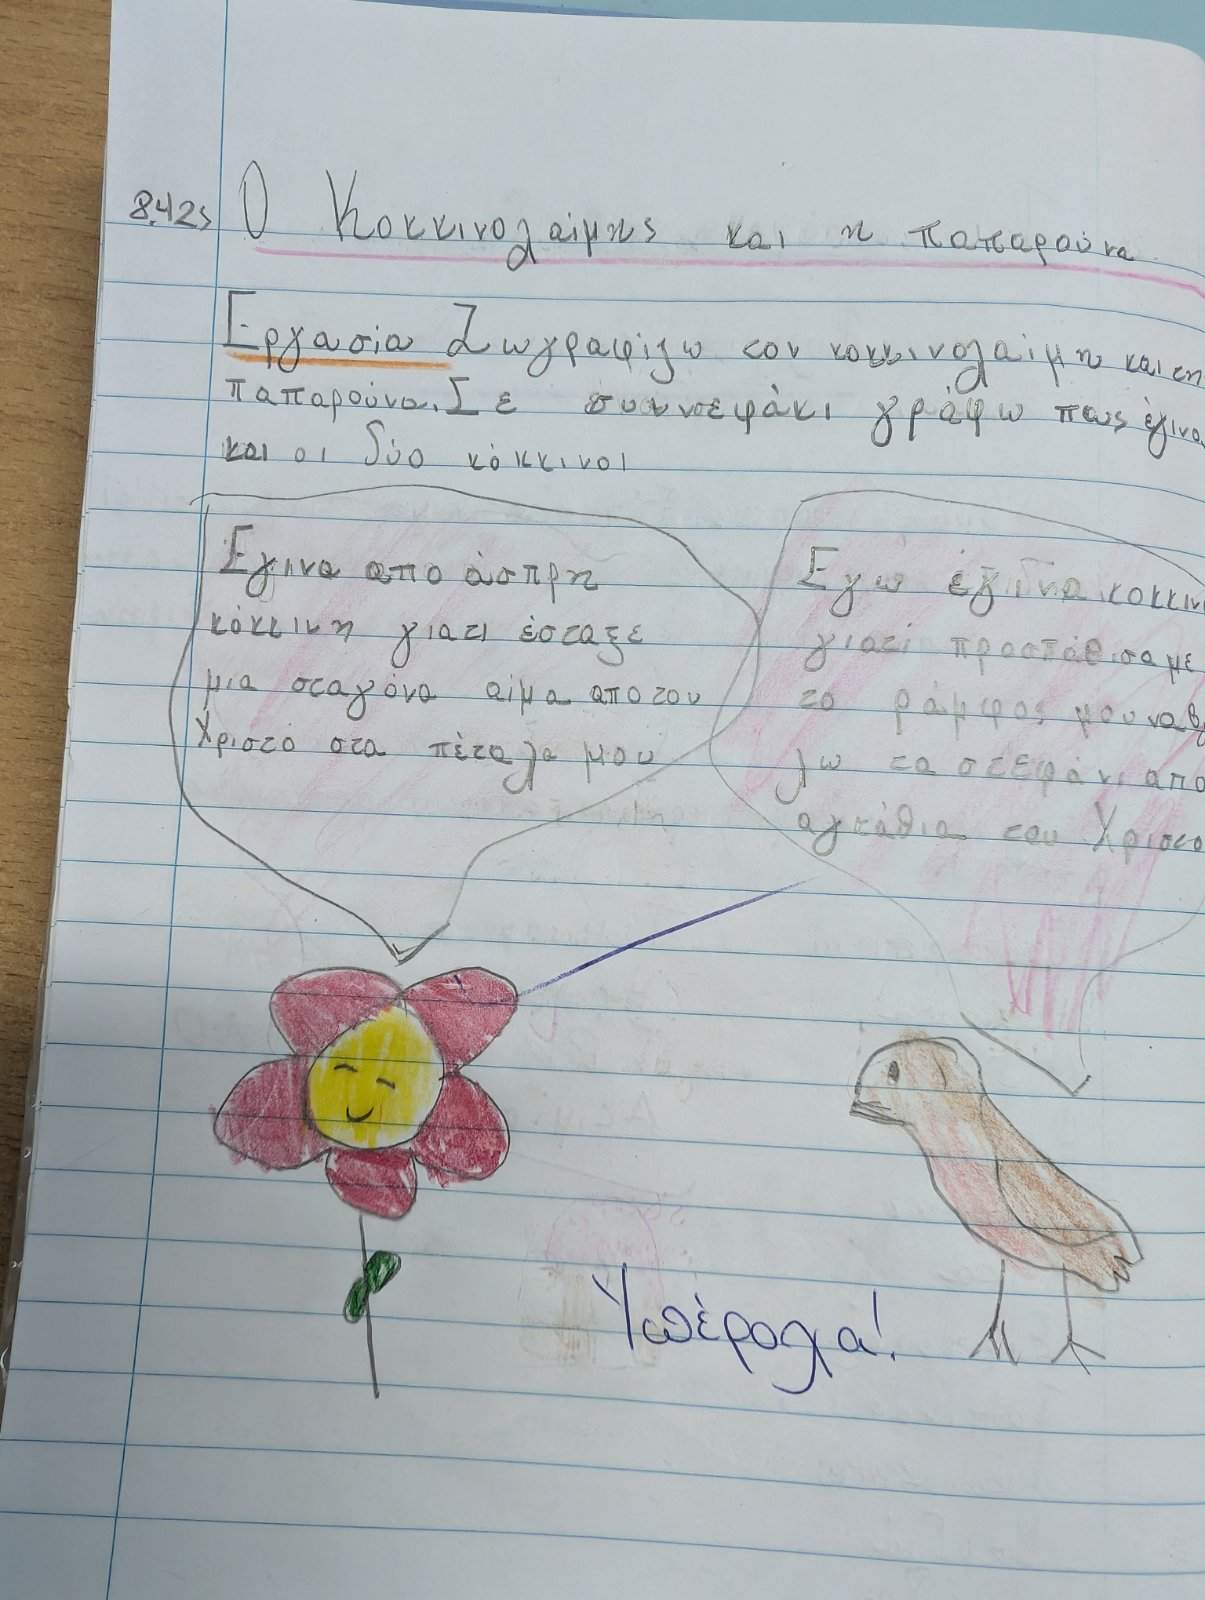 8.4.25 Ο Κοκκινολαίμης και η παπαρούνα
Εργασία Ζωγραφίζω τον κοκκινολαίμη και τη
παπαρούνα. Σε συννεφάκι γράφω πως έγινα
και οι δύο κόκκινοι
Έγινα απο άσπρη
κόκκινη γιατι έσταξε
μια σταγόνα αίμα απο του
Χριστό στα πέταλα μου
Εγω έγινα κοκκιν
γιατί προσπάθισα με
το ράμφος μου να β
λω τα στεφάνι απο
αγκάθια του Χριστο
Υπέροχα!